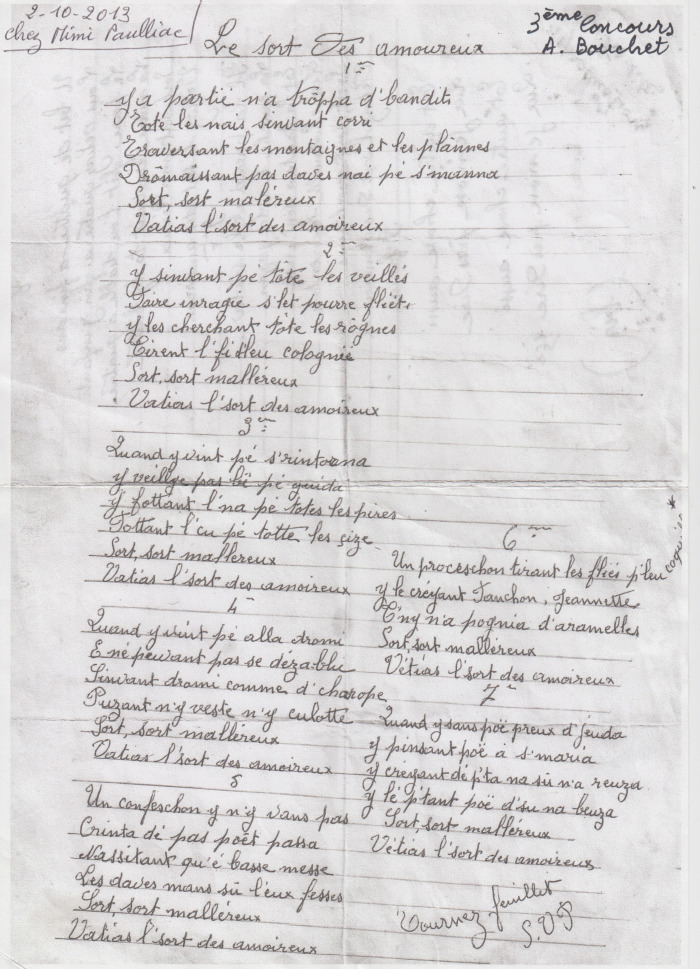 2-10-2013
chez Mimi Paulliac
3ème Concours
A. Bouchet
Le sort des amoureux
1er
y a partiè n'a trôppa d'bandits
Totè les nais sinvant corri
Traversant les montaignes et les plànnes
Drômaissant pas daves nai pè s'manna
Sort, sort maléreux
Vatias l'sort des amoireux
2
y sinvant pè tôte les veillés
Faire inragie s'let pourre fliët
y les cherchant tôte les rôgnes
Tirent l'fi d'leu colognié
Sort, sort malléreux
Vatias l'sort des amoireux
3
Quand y vint pè s'rintorna
y veillge pas bi pè guida
y fottant l'na pè totes les pires
Fottant l'cu pè totte les çize
Sort, sort malléreux
Vatias l'sort des amoireux
4
Quand y vint pè alla dromi
E nè peuvant pas se dèzablu
Sinvant dromi comme d'charope
Puzant n'y veste n'y culotte
Sort, sort malléreux
Vatias l'sort des amoireux
5
Un confeschon y n'y vans pas
Crinta dè pas poët passa
N'assitant qu'è basse messe
Les daves mans sù l'eux fesses
Sort, sort malléreux
Vatias l'sort des amoireux
6
Un proceschon tirant les fliës p'leu
y le crèyant Fanchon, Jeannette
E n'y n'a pognia d'aramelles
Sort, sort malléreux
Vètias l'sort des amoireux
7
Quand y sans poë preux d'jeuda
y pinsant poë à s'maria
y crèyant dè p'ta na sù n'a reuza
y lè p'tant poë d'su na beuza
Sort, sort malléreux
Vètias l'sort des amoireux
Tournez feuillet
S.V.P